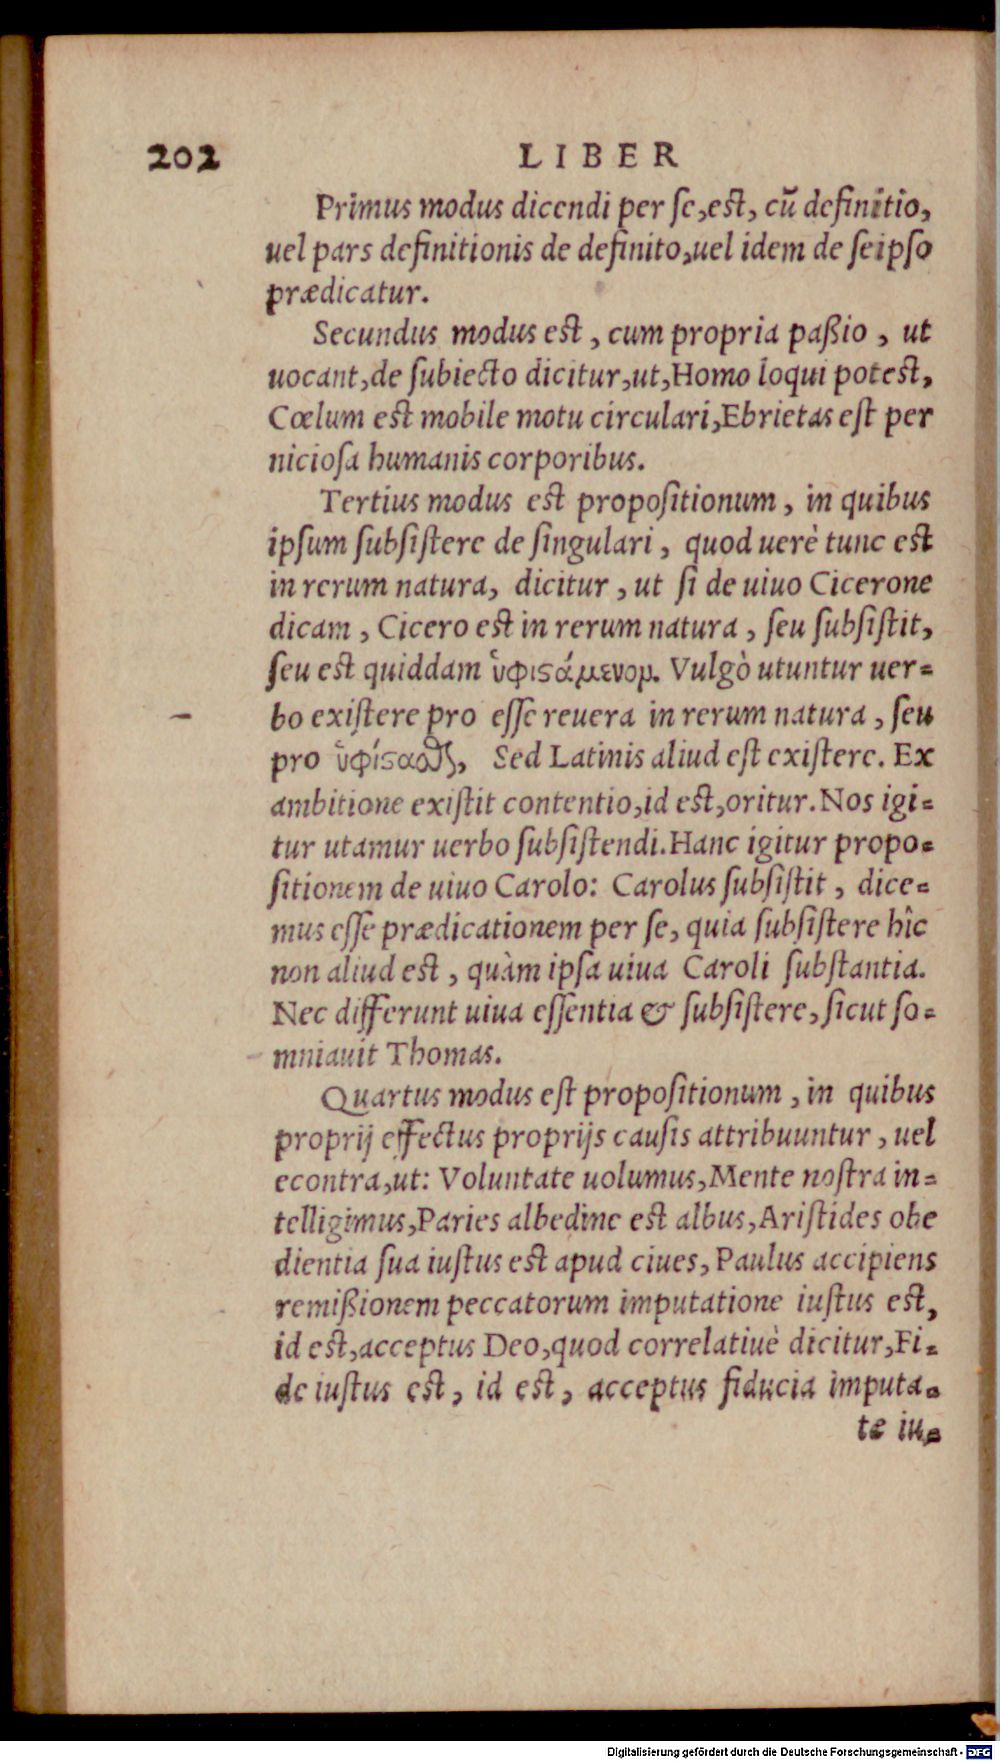 202 LIBER
Primus modus dicendi per ſe, est, cū definitio,
uel pars definitionis de definito, uel idem de ſeipſo
prædicatur.
Secundus modus est, cum propria paßio, ut
uocant, de ſubiecto dicitur, ut, Homo loqui potest,
Cœlum est mobile motu circulari, Ebrietas eſt per
nicioſa humanis corporibus.
Tertius modus est propoſitionum, in quibus
ipſum ſubſiſtere de ſingulari, quod uerè tunc est
in rerum natura, dicitur, ut ſi de uiuo Cicerone
dicam, Cicero est in rerum natura, ſeu ſubſiſtit,
ſeu est quiddam ὑφιϛάμενομ. Vulgò utuntur uer-
bo exiſtere pro eſſe reuera in rerum natura, ſeu
pro ὑφίϛαϑς, Sed Latinis aliud eſt exiſtere. Ex
ambitione exiſtit contentio, id est, oritur. Nos igi-
tur utamur uerbo ſubſiſtendi. Hanc igitur propo-
ſitionem de uiuo Carolo: Carolus ſubſiſtit, dice-
mus eſſe prædicationem per ſe, quia ſubſiſtere hîc
non aliud est, quàm ipſa uiua Caroli ſubſtantia.
Nec differunt uiua eſſentia & ſubſiſtere, ſicut ſo-
mniauit Thomas.
Quartus modus eſt propoſitionum, in quibus
proprij effectus proprijs cauſis attribuuntur, uel
econtra, ut: Voluntate uolumus, Mente noſtra in-
telligimus, Paries albedine est albus, Ariſtides obe
dientia ſua iuſtus est apud ciues, Paulus accipiens
remißionem peccatorum imputatione iuſtus est,
id est, acceptus Deo, quod correlatiuè dicitur, Fi-
de iuſtus est, id est, acceptus fiducia imputa-
te iu-
Digitalisierung gefördert durch die Deutsche Forschungsgemeinschaft - DFG